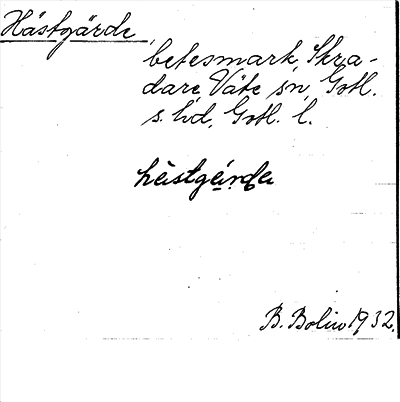 Hästgärde,
betesmark, Skra-
dare, Väte sn, Gotl.
s. hd, Gotl. l.
hästgärdä
B. Bolin 1932.